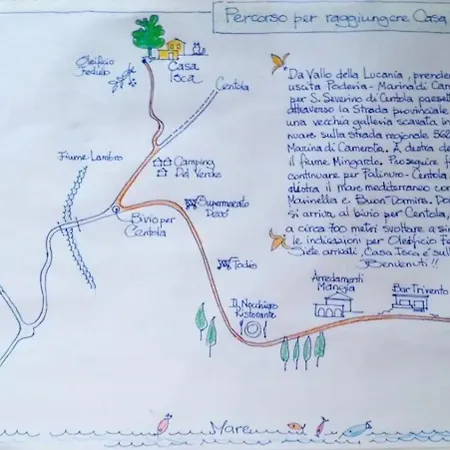 Percorso per raggiungere Casa
Oleificio
Fedullo
Casa
Isca
Centola
Fiume Lambro
Camping
Del Verde
Supermercato
Decò
Bivio per
Centola
Todis
Il Nocchiero
Ristorante
Arredamenti
Mangia
Bar Trivento
Mare
Da Vallo della Lucania, prender
uscita Poderia - Marina di Cam
per S. Severino di Centola paeset
attraverso la Strada provinciale
una vecchia galleria scavata in
nuare sulla strada regionale 562
Marina di Camerota. A destra de
il fiume Mingardo. Proseguire f
continuare per Palinuro - Centola
destra il mare mediterraneo con
Marinella e Buon Dormire. Do
si arriva al bivio per Centola,
a circa 700 metri svoltare a sin
le indicazioni per Oleificio Fe
Siete arrivati, Casa Isca è sul
Benvenuti!!